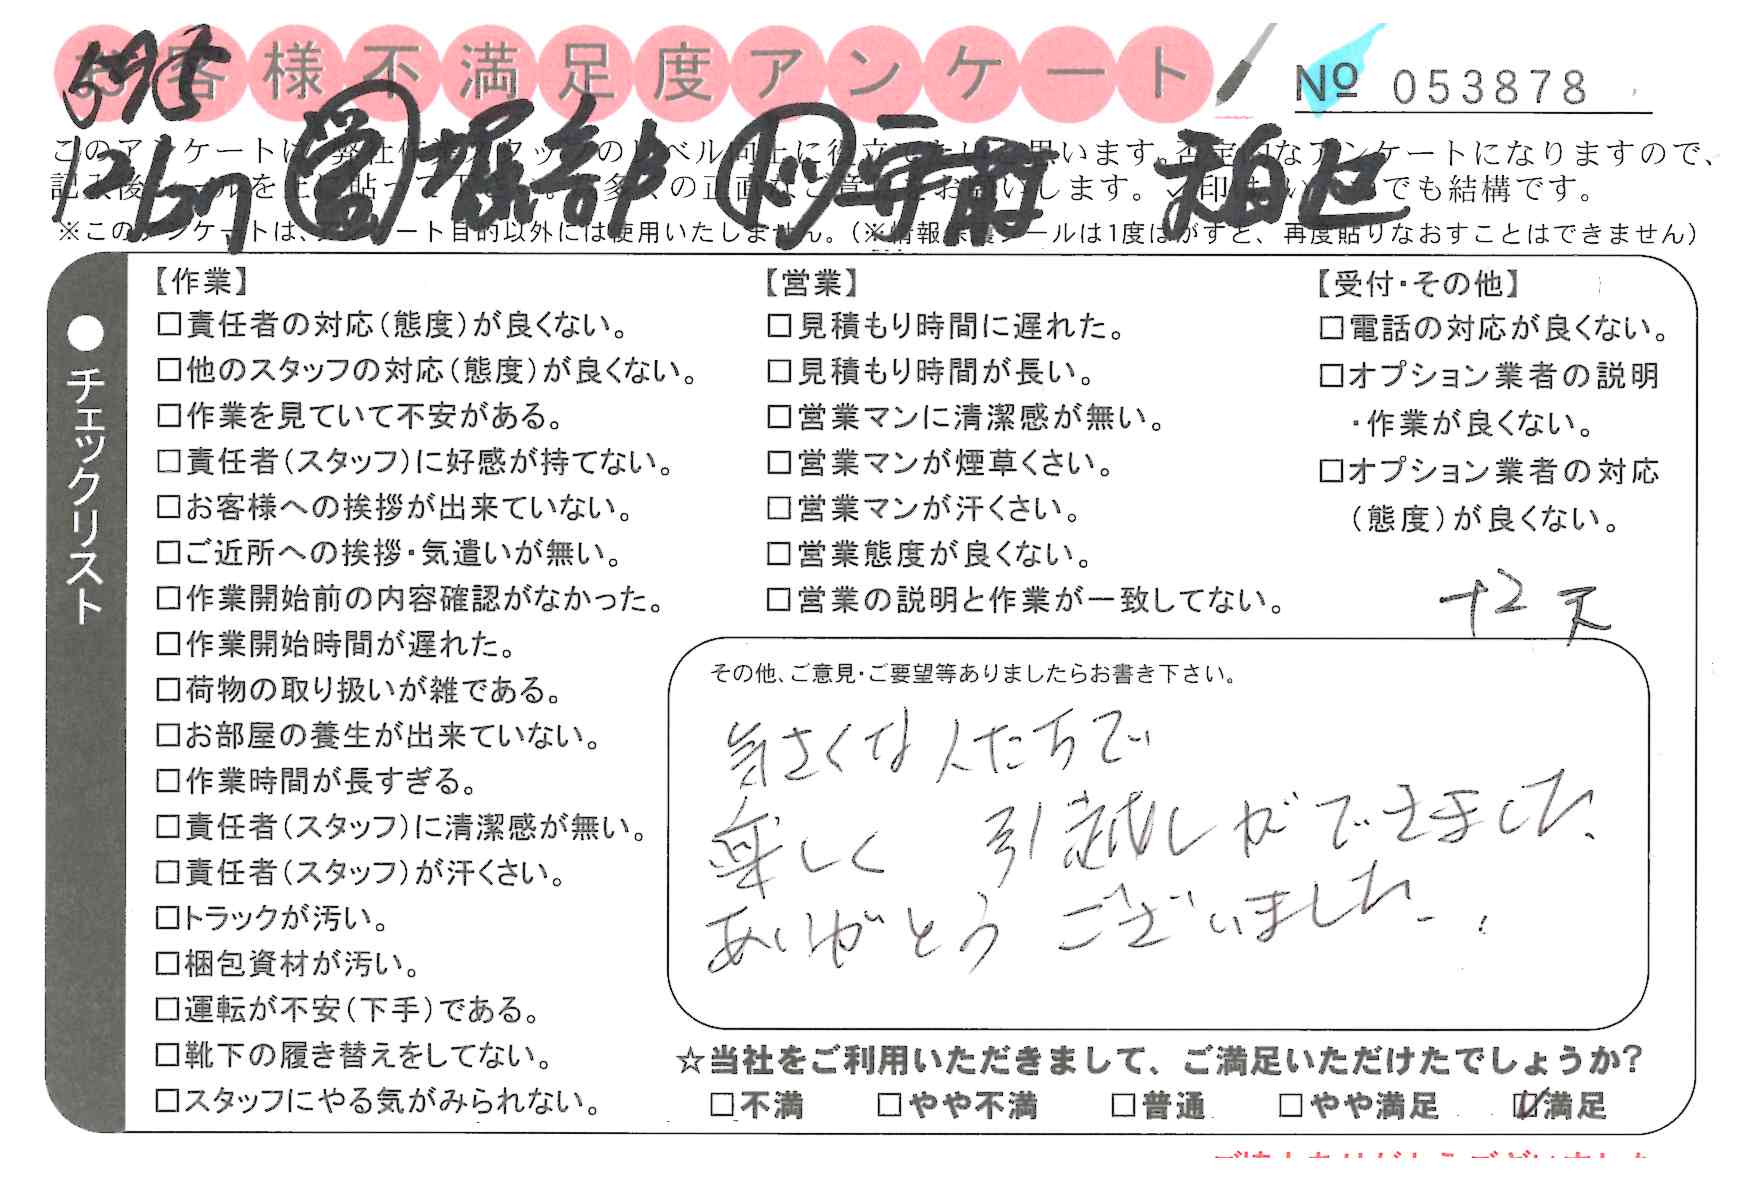 お客様不満足度アンケート
№ 053878
このアンケートは、弊社スタッフのレベル向上に役立てたいと思います。否定的なアンケートになりますので、
記入後シールを上に貼って下さい。多くの正直なご意見をお願いします。✓印はいくつでも結構です。
※このアンケートは、アンケート目的以外には使用いたしません。（※情報保護シールは1度はがすと、再度貼りなおすことはできません）
営 堀部
●チェックリスト
【作業】
□責任者の対応（態度）が良くない。
□他のスタッフの対応（態度）が良くない。
□作業を見ていて不安がある。
□責任者（スタッフ）に好感が持てない。
□お客様への挨拶が出来ていない。
□ご近所への挨拶・気遣いが無い。
□作業開始前の内容確認がなかった。
□作業開始時間が遅れた。
□荷物の取り扱いが雑である。
□お部屋の養生が出来ていない。
□作業時間が長すぎる。
□責任者（スタッフ）に清潔感が無い。
□責任者（スタッフ）が汗くさい。
□トラックが汚い。
□梱包資材が汚い。
□運転が不安（下手）である。
□靴下の履き替えをしてない。
□スタッフにやる気がみられない。
【営業】
□見積もり時間に遅れた。
□見積もり時間が長い。
□営業マンに清潔感が無い。
□営業マンが煙草くさい。
□営業マンが汗くさい。
□営業態度が良くない。
□営業の説明と作業が一致してない。
【受付・その他】
□電話の対応が良くない。
□オプション業者の説明
・作業が良くない。
□オプション業者の対応
（態度）が良くない。
+2
その他、ご意見・ご要望等ありましたらお書き下さい。
気さくな人たちで
楽しく 引越しができました。
ありがとうございました。
☆当社をご利用いただきまして、ご満足いただけたでしょうか？
□不満 □やや不満 □普通 □やや満足 ☑満足